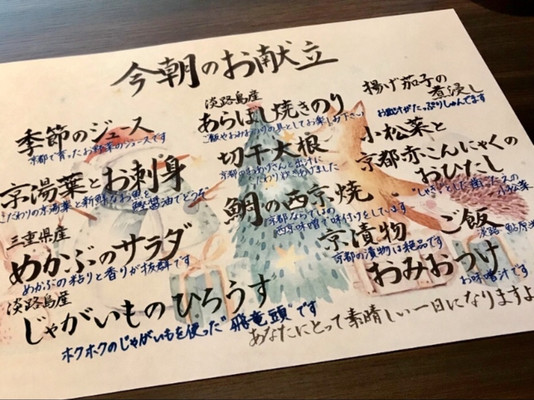 今朝のお献立
季節のジュース
京都で育ったお野菜のジュースです
京湯葉とお刺身
こだわりの京湯葉と新鮮なお魚を
醤油でどうぞ
三重県産
めかぶのサラダ
めかぶの粘りと香りが抜群です
淡路島産
じゃがいものひろうす
ホクホクのじゃがいもを使った"飛竜頭"です
淡路島産
あらばし焼きのり
切干大根
鯛の西京焼
京都ならではの
西京味噌で味付けをしています
京漬物
京都の漬物は絶品です
揚げ茄子の
煮浸し
お出汁がたっぷりしゅんでます
小松菜と
京都赤こんにゃくの
おひたし
ご飯
おみおつけ
お味噌汁です
あなたにとって素晴しい一日になりますよ